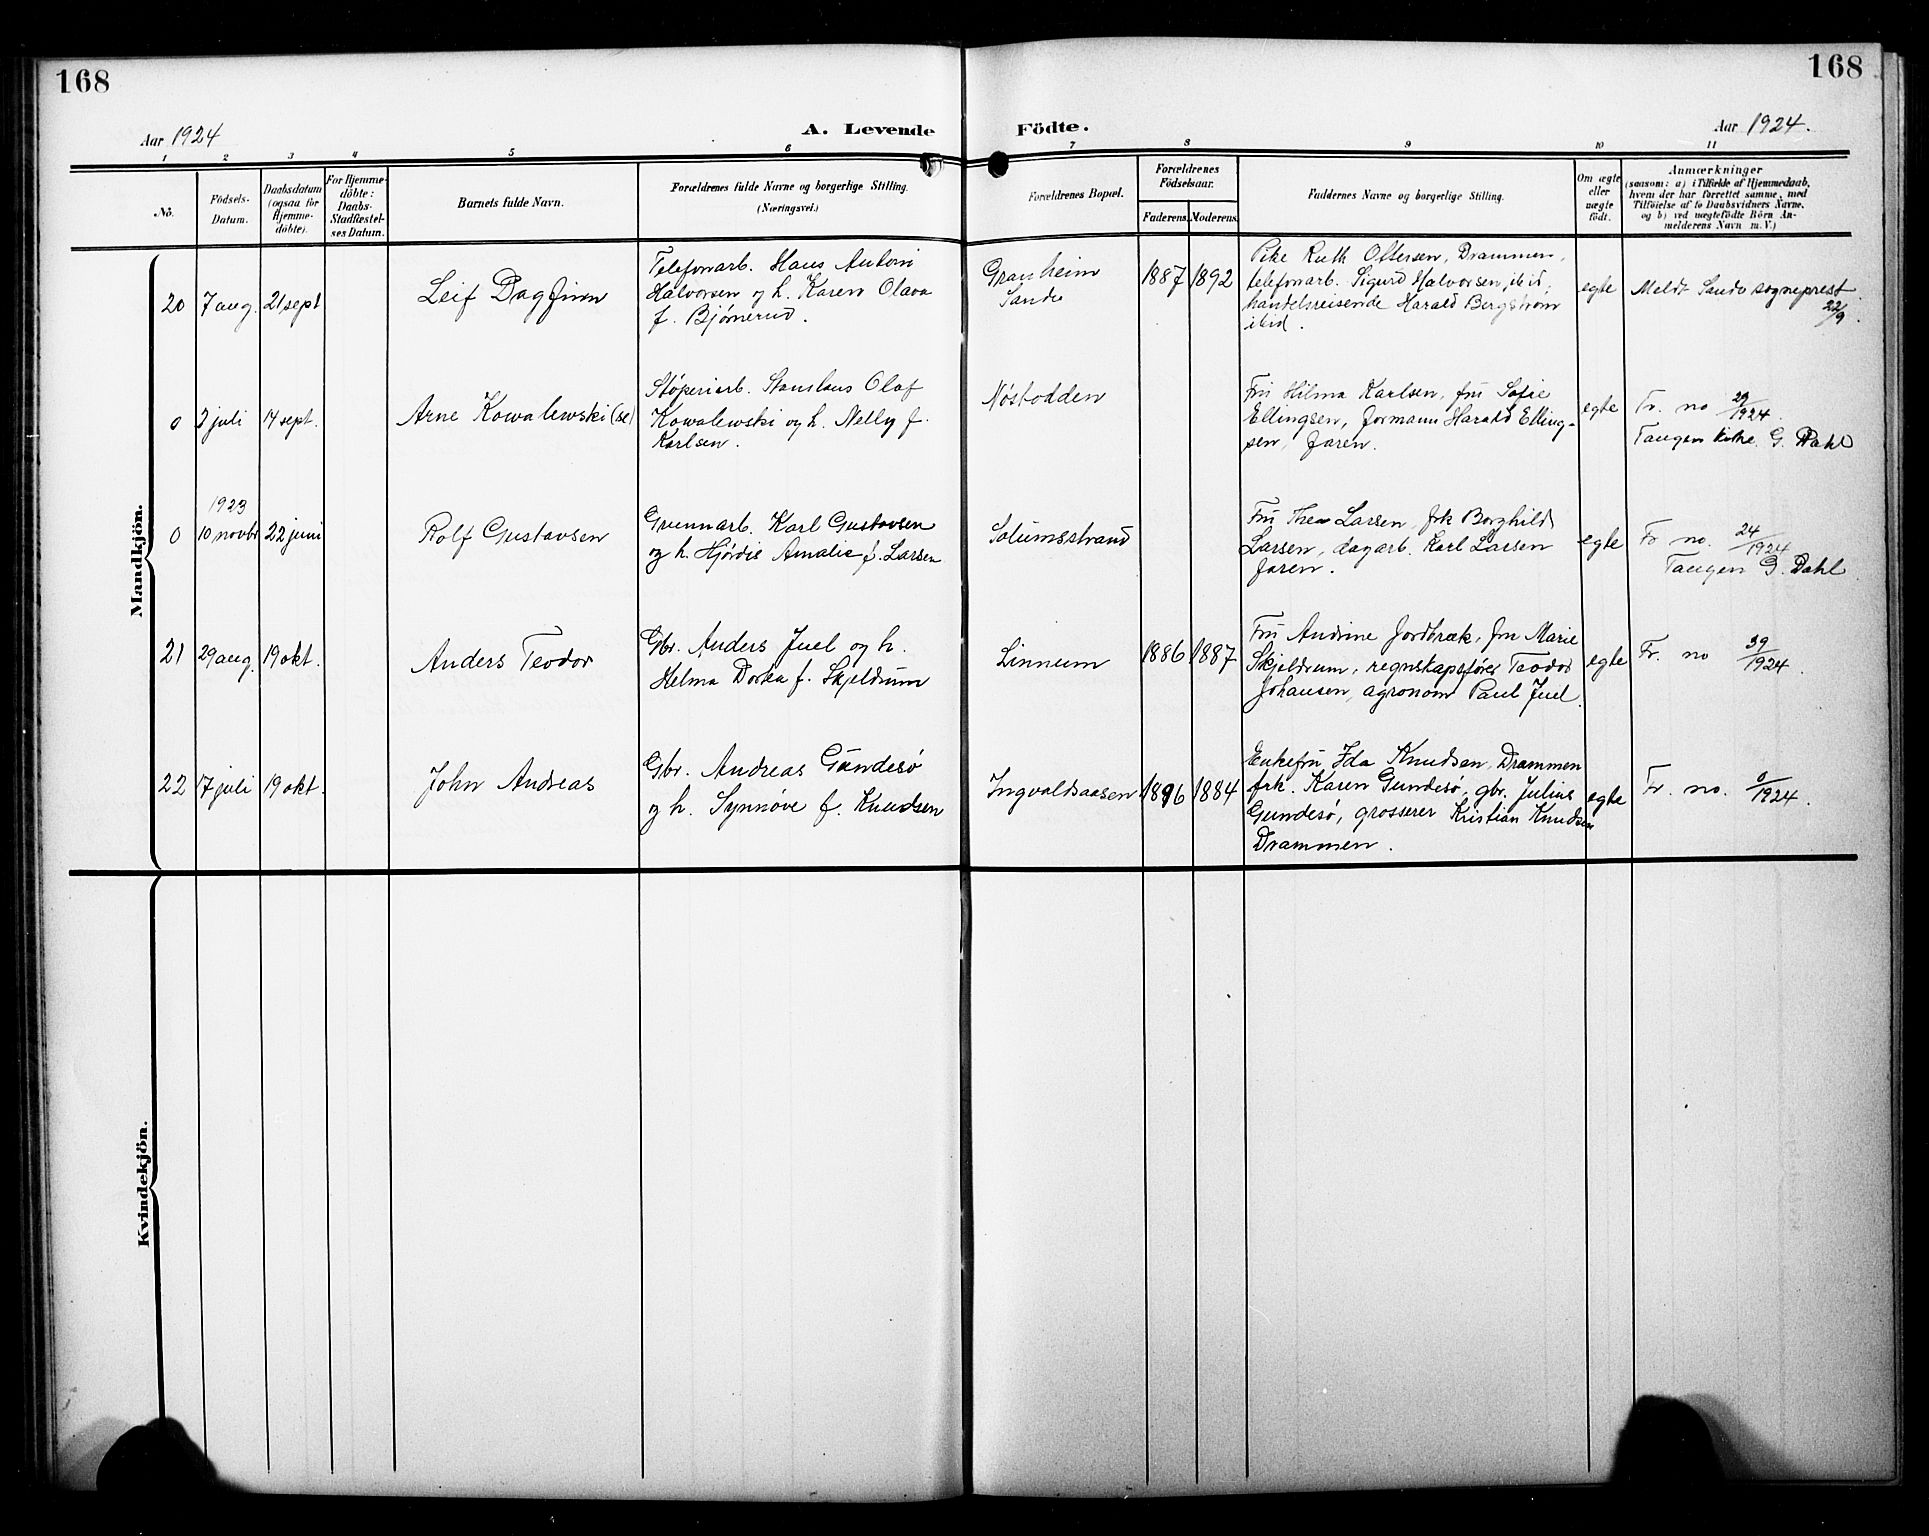 168
168
Aar 1924
A. Levende
Födte.
Aar 1924.
1 2 3 4 5 6 7 8 9 10 11
No.
Födsels-
Datum.
Daabsdatum
(ogsaa for
Hjemme-
döbte).
For Hjemme-
döbte:
Daabs-
Stadfæstel-
ses Datum.
Barnets fulde Navn.
Forældrenes fulde Navne og borgerlige Stilling.
(Næringsvei.)
Forældrenes Bopæl.
Forældrenes
Födselsaar.
Faderens. Moderens.
Faddernes Navne og borgerlige Stilling.
Om ægte
eller
uægte
födt.
Anmærkninger
(saasom: a) i Tilfælde af Hjemmedaab,
hvem der har forrettet samme, med
Tilföielse af to Daabsvidners Navne,
og b) ved uægtefödte Börn An-
melderens Navn m. V.)
Mandkjön.
20
7 aug.
21 sept
Leif Dagfinn
Telefonarb. Hans Antoni
Halvorsen og h. Karen Olava
f. Bjørnerud.
Granheim
Sande
1887
1892
Pike Ruth Oftersen, Drammen,
telefonarb. Sigurd Halvorsen, ibid,
handelsreisende Harald Bergstrøm
ibid.
egte
Meldt Sande sogneprest
22/9.
0
2 juli
14 sept.
Arne Kowalewski (se)
Støperiarb. Stanslaus Olaf
Kowalewski og h. Nelly f.
Karlsen.
Nøstodden
Fru Hilma Karlsen, fru Sofie
Ellingsen, formann Harald Elling-
sen, faren.
egte
Fr. no 29/1924.
Tangen kirke G. Dahl
0
1923
10 novbr
22 juni
Rolf Gustavsen
Grunnarb. Karl Gustavsen
og h. Hjørdis Amalie f. Larsen
Solumsstrand
Fru Thea Larsen, frk Borghild
Larsen, dagarb. Karl Larsen
faren.
egte
Fr no. 24/1924
Tangen G. Dahl
21
29 aug.
19 okt.
Anders Teodor
Gbr. Anders Juel og h.
Helma Dorka f. Skjeldrum
Linnum
1886
1887
Fru Andrine Jordbræk, fru Marie
Skjeldrum, regnskapsfører Teodor
Johansen, agronom Paul Juel.
egte
Fr. no 39/1924.
22
17 juli
19 okt.
John Andreas
Gbr. Andreas Gundesø
og h. Synnøve f. Knudsen
Ingvaldsaasen
1896
1884
Enkefru Ida Knudsen, Drammen
frk. Karen Gundesø, gbr. Julius
Gundesø, grosserer Kristian Knudsen
Drammen.
egte
Fr. no. 0/1924.
Kvindekjön.